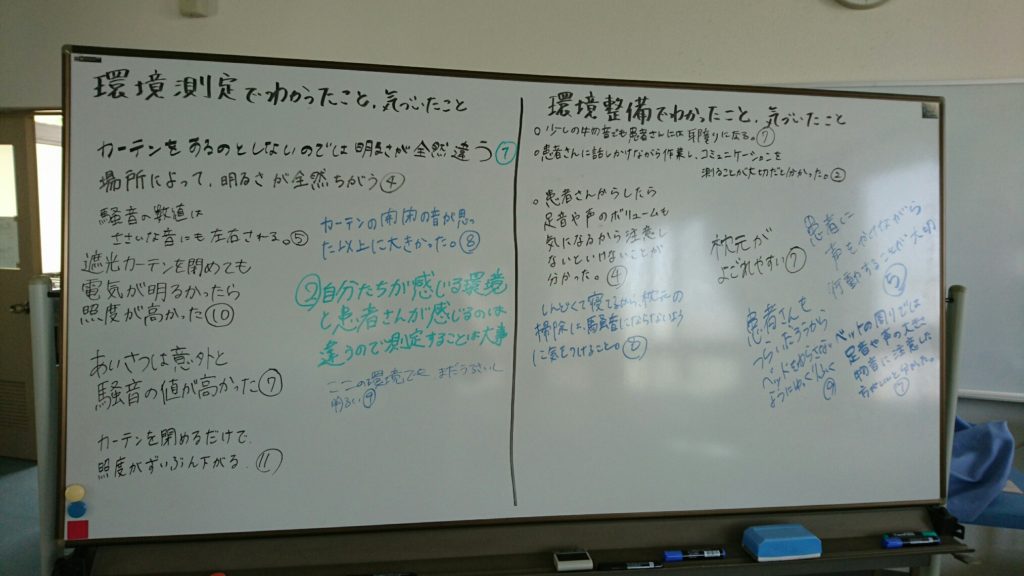 環境測定でわかったこと、気づいたこと
カーテンをするのとしないのでは明るさが全然違う⑦
場所によって、明るさが全然ちがう④
騒音の数値は
ささいな音にも左右される。⑤
遮光カーテンを閉めても
電気が明るかったら
照度が高かった⑩
あいさつは意外と
騒音の値が高かった⑦
カーテンを閉めるだけで、
照度がずいぶん下がる。⑪
カーテンの開閉の音が思っ
た以上に大きかった。⑧
②自分たちが感じる環境
と患者さんが感じるのは
違うので測定することは大事
ここの環境でも、まだうるさいし
明るい⑨
環境整備でわかったこと、気づいたこと
○少しの物音でも患者さんには耳障りになる。⑦
○患者さんに話しかけながら作業し、コミュニケーションを
測ることが大切だと分かった。②
○患者さんからしたら
足音や声のボリュームも
気になるから注意し
ないといけないことが
分かった。④
しんどくて寝てるから、枕元の
掃除は、騒音にならないよう
に気をつけること。⑥
枕元が
よごれやすい⑦
患者に
声をかけながら
行動することが大切
患者さんも
つらいだろうから
ベッドをゆらさない
ように
ベッドの周りでは
足音や声の大きさ
物音に注意した
方がいいと分かった。